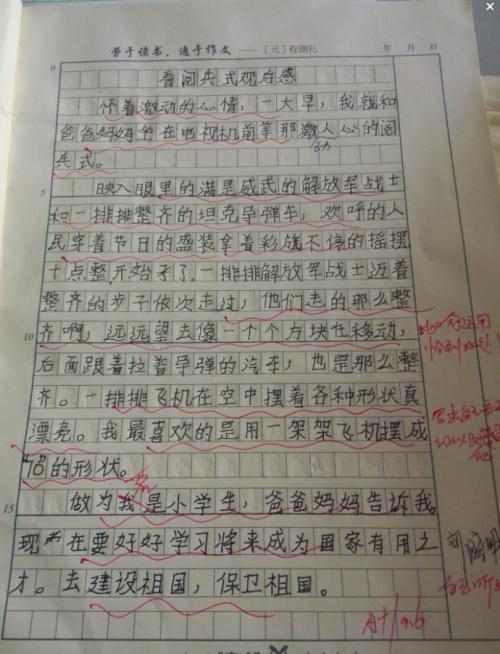 劳于读书，逸于作文 ——〔元〕程端礼 年 月 日
0
看阅兵式观后感
怀着激动的心情，一大早，我就和
爸爸妈妈坐在电视机前等那激人心的阅
动
兵式。
5
映入眼里的满是威武的解放军战士
和一排排整齐的坦克导弹车，欢呼的人
民穿着节日的盛装拿着彩旗不停的摇摆，
十点整，开始了，一排排解放军战士迈着
整齐的步子依次走过，他们走的那么整
10
齐啊，远远望去像一个个方块在移动，
后面跟着拉着导弹的汽车，也是那么整
齐。一排排飞机在空中摆着各种形状真
漂亮。我最喜欢的是用一架架飞机摆成
"70"的形状。
15
做为我是小学生，爸爸妈妈告诉我。
现在要好好学习将来成为国家有用之
才。去建设祖国，保卫祖国。
A+ 9.6